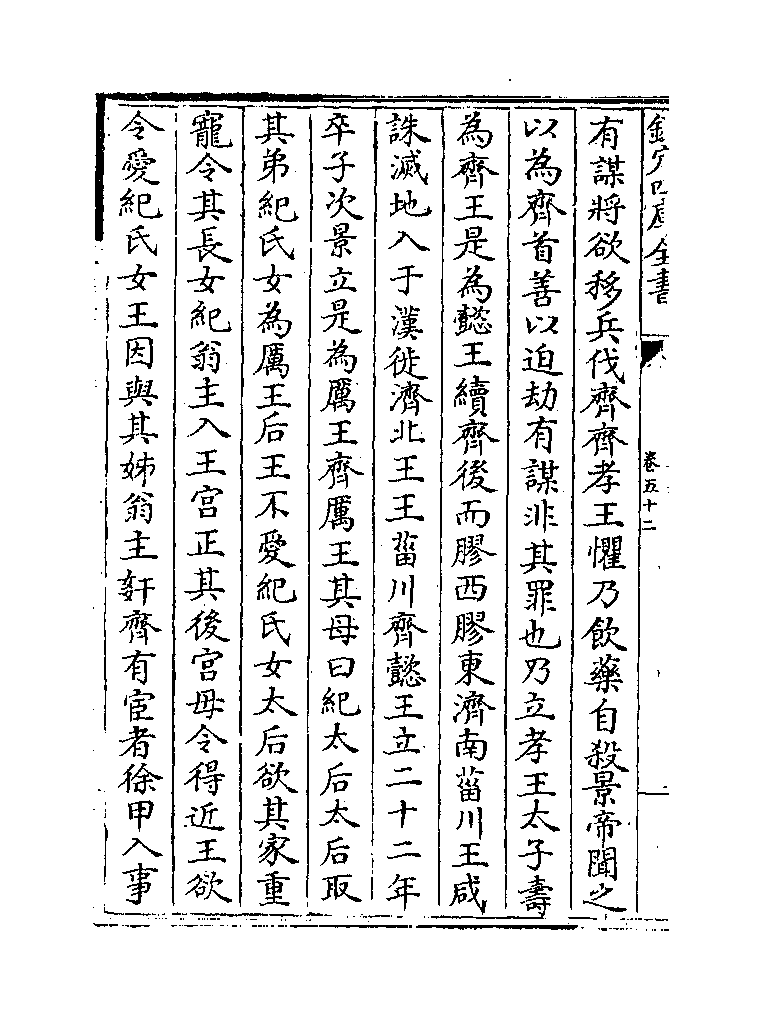 欽定四庫全書
卷五十二
有謀將欲移兵伐齊齊孝王懼乃飲藥自殺景帝聞之
以為齊首善以迫劫有謀非其罪也乃立孝王太子壽
為齊王是為懿王續齊後而膠西膠東濟南菑川王咸
誅滅地入于漢徙濟北王王菑川齊懿王立二十二年
卒子次景立是為厲王齊厲王其母曰紀太后太后取
其弟紀氏女為厲王后王不愛紀氏女太后欲其家重
寵令其長女紀翁主入王宮正其後宮毋令得近王欲
令愛紀氏女王因與其姊翁主姦齊有宦者徐甲入事